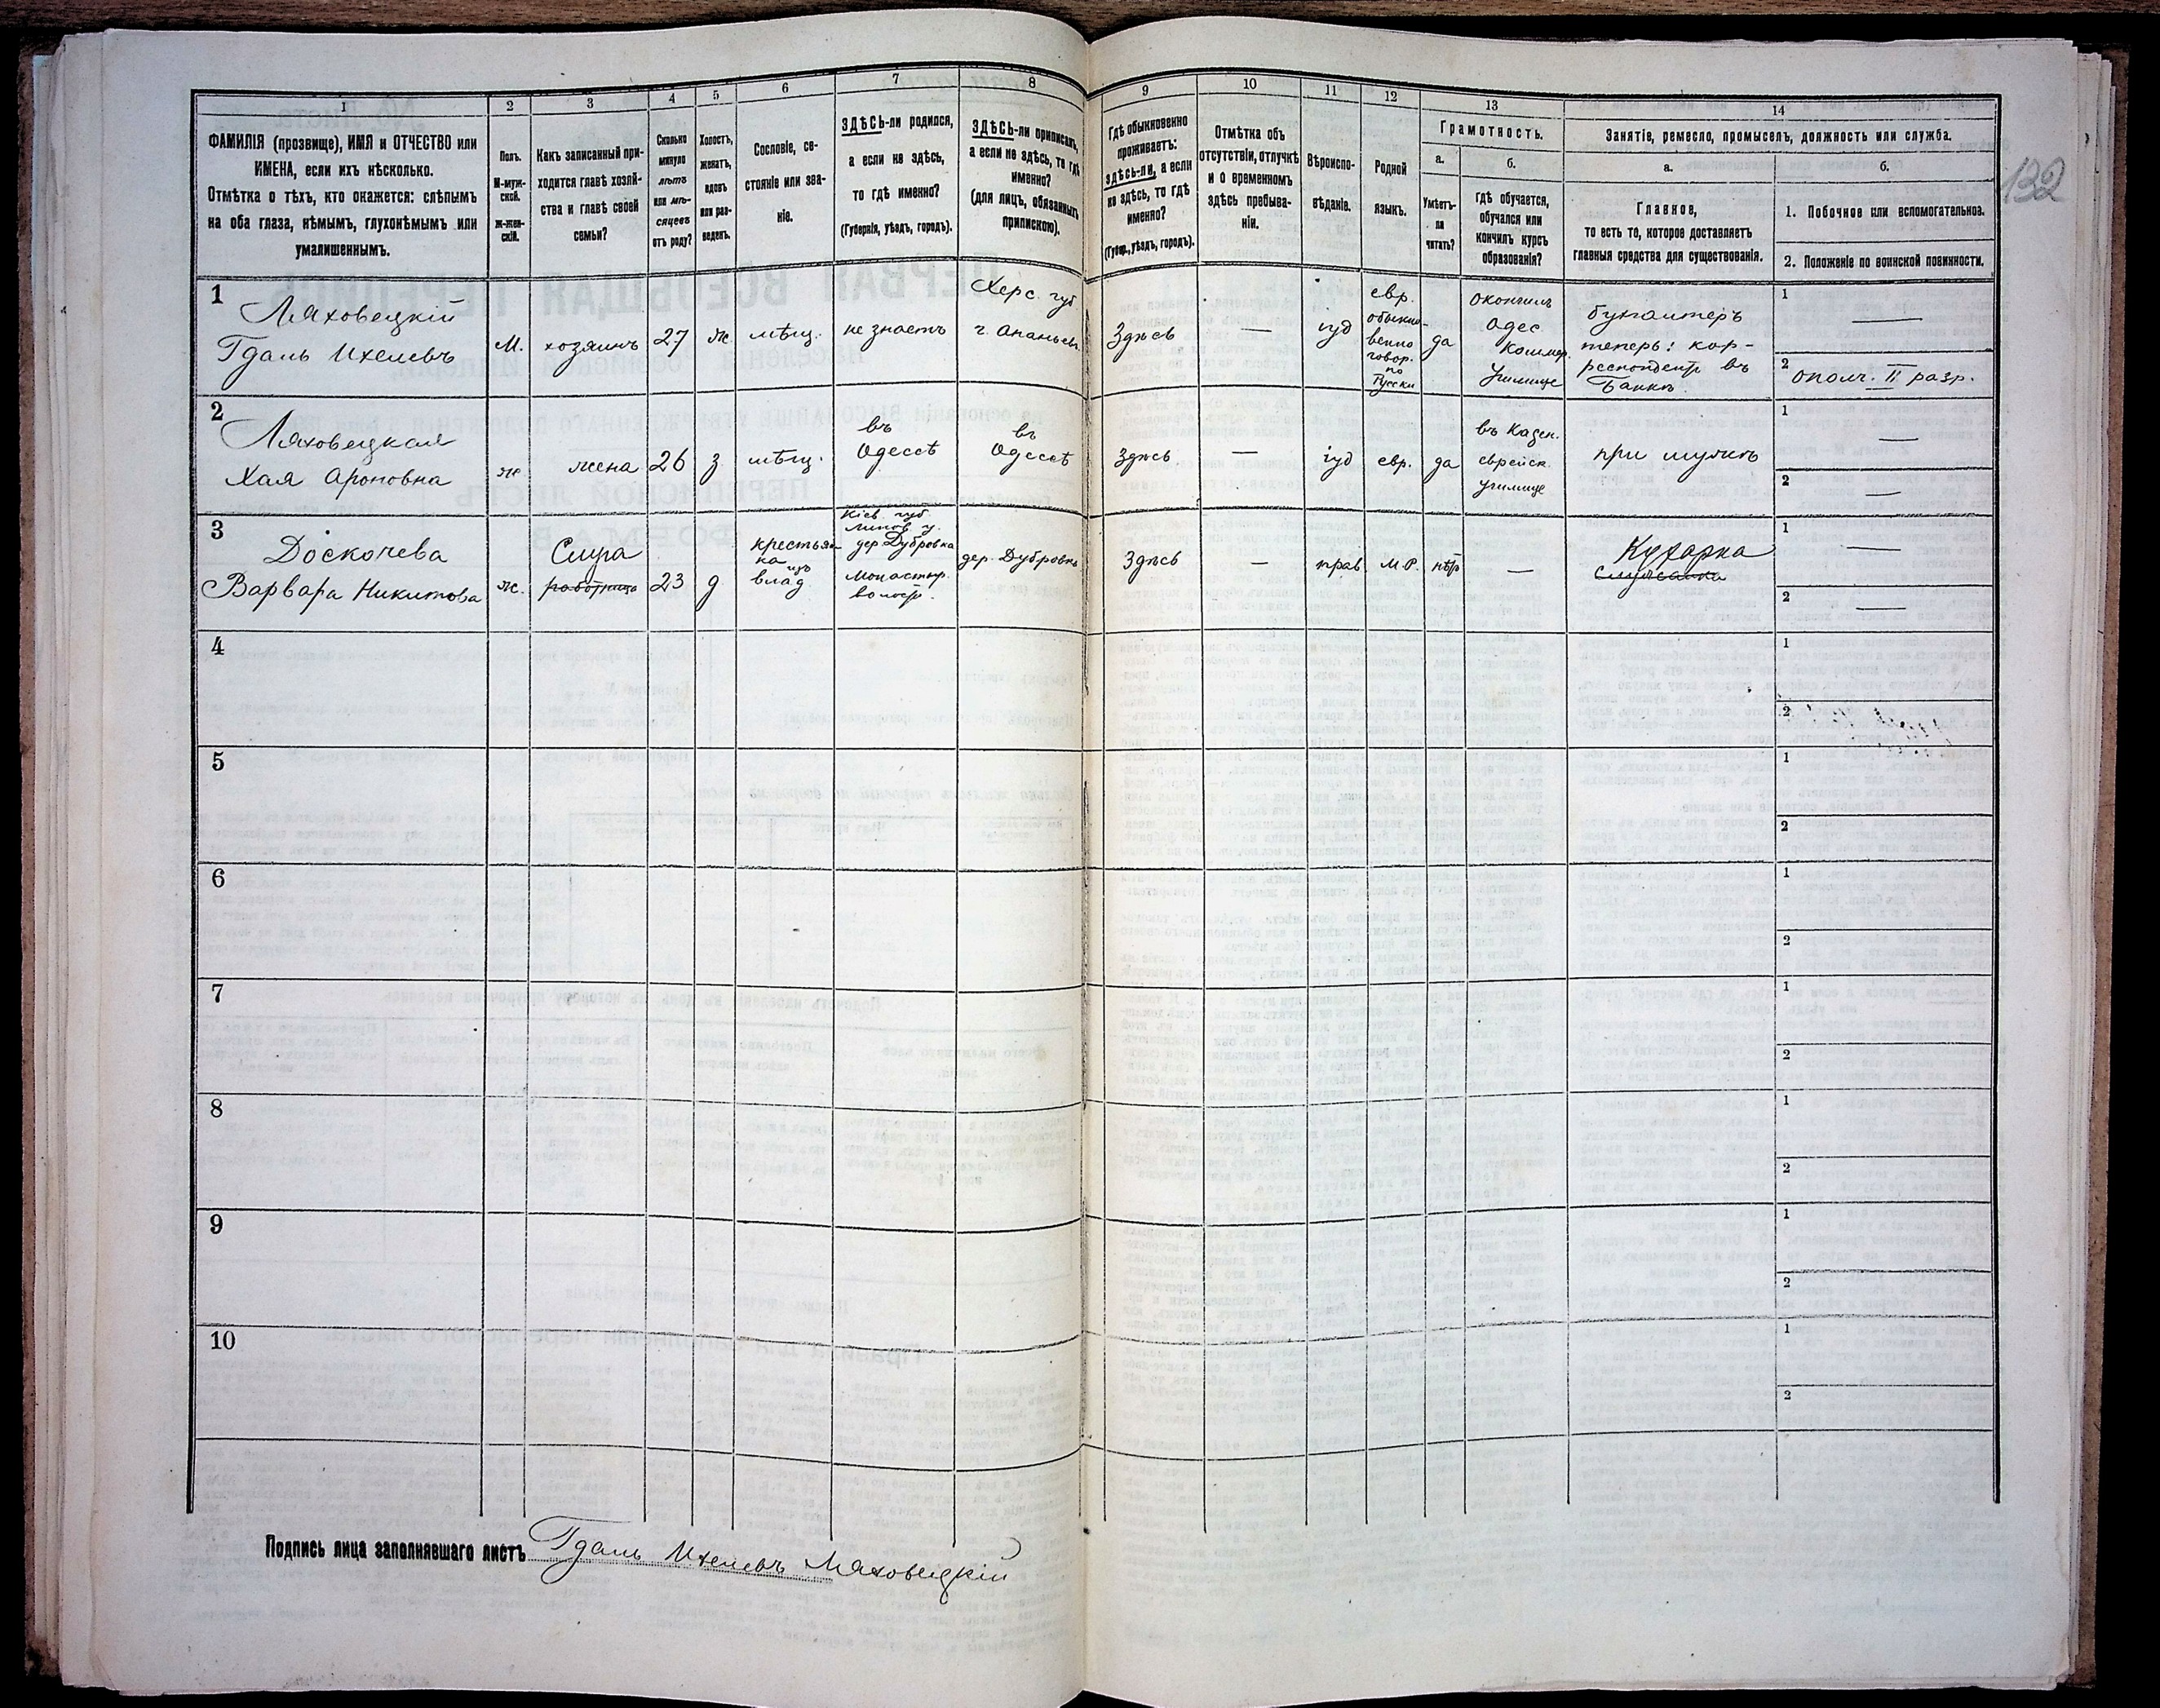 1
2
3
4
5
6
7
8
9
10
11
12
13
14
ФАМИЛІЯ (прозвище), ИМЯ и ОТЧЕСТВО или
ИМЕНА, если ихъ нѣсколько.
Отмѣтка о тѣхъ, кто окажется: слѣпымъ
на оба глаза, нѣмымъ, глухонѣмымъ или
умалишеннымъ.
Полъ.
М-муж-
ской.
ж-жен-
скій.
Какъ записанный при-
ходится главѣ хозяй-
ства и главѣ своей
семьи?
Сколько
минуло
лѣтъ
или мѣ-
сяцевъ
отъ роду?
Холостъ,
женатъ,
вдовъ
или раз-
веденъ.
Сословіе, со-
стояніе или зва-
ніе.
ЗДѢСЬ-ли родился,
а если не здѣсь,
то гдѣ именно?
(Губернія, уѣздъ, городъ).
ЗДѢСЬ-ли приписанъ,
а если не здѣсь, то гдѣ
именно?
(для лицъ, обязанныхъ
припискою).
Гдѣ обыкновенно
проживаетъ:
здѣсь-ли, а если
не здѣсь, то гдѣ
именно?
(Губер., уѣздъ, городъ).
Отмѣтка объ
отсутствіи, отлучкѣ
и о временномъ
здѣсь пребыва-
ніи.
Вѣроиспо-
вѣданіе.
Родной
языкъ.
Грамотность.
а.
Умѣетъ-
ли
читать?
б.
гдѣ обучается,
обучался или
кончилъ курсъ
образованія?
Занятіе, ремесло, промыселъ, должность или служба.
а.
Главное,
то есть то, которое доставляетъ
главныя средства для существованія.
б.
1. Побочное или вспомогательное.
2. Положеніе по воинской повинности.
132
1
Ляховецкій
Гдаль Ихелевъ
М.
хозяинъ
27
ж.
мѣщ.
не знаетъ
Херс. губ
г. Ананьев.
Здѣсь
—
іуд
евр.
обыкно-
венно
говор.
по
Русски
да
окончилъ
Одес.
Коммер.
Училище
бухгалтеръ
теперь: кор-
респондентъ въ
Банкѣ.
1
—
2
ополч. II разр.
2
Ляховецкая
Хая Ароновна
ж
жена
26
з.
мѣщ.
въ
Одессѣ
въ
Одессѣ
Здѣсь
—
іуд
евр.
да
въ Казен.
еврейск.
Училище
при мужѣ
1
—
2
—
3
Доскочева
Варвара Никитова
ж.
работница
23
д
крестьян-
ка изъ
влад.
Кіев. губ.
Липов. у.
дер. Дубровка
Монастыр.
волост.
дер. Дубровка
Здѣсь
—
прав.
М.Р.
нѣтъ
—
Кухарка
Служанка
1
—
2
—
4
1
2
5
1
2
6
1
2
7
1
2
8
1
2
9
1
2
10
1
2
Подпись лица заполнявшаго листъ Гдаль Ихелевъ Ляховецкій